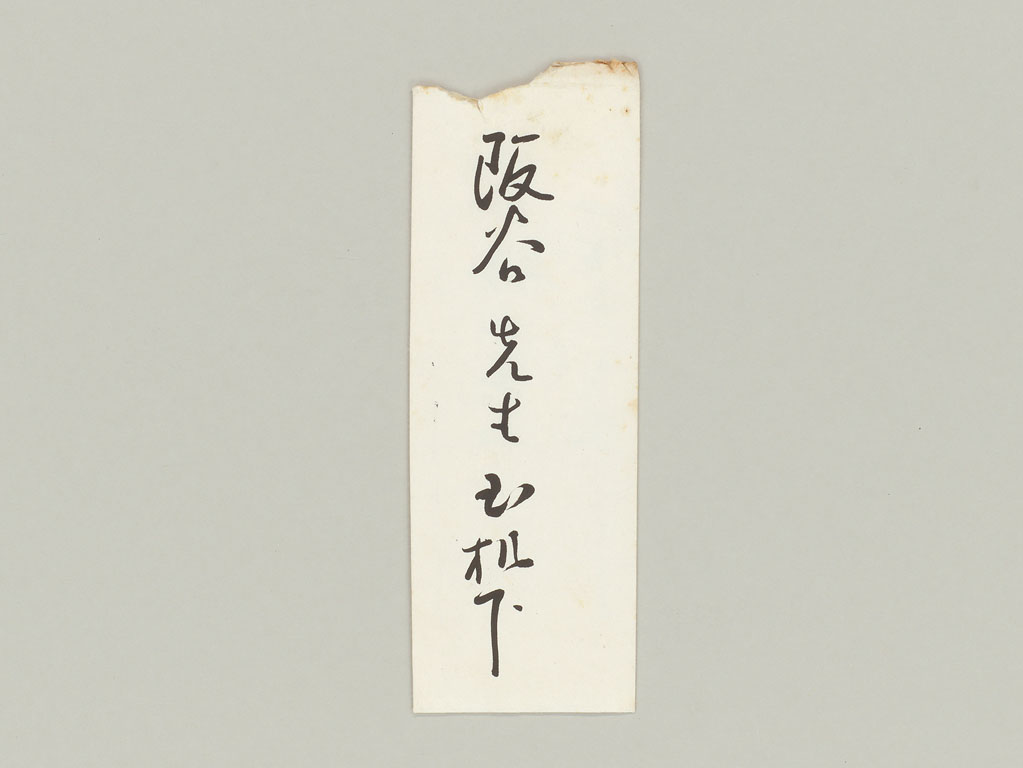 阪谷先生玉机下